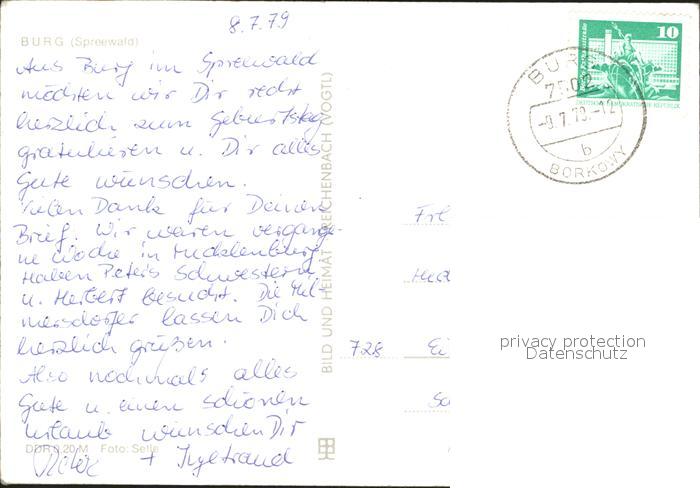 8.7.79
BURG (Spreewald)
Aus Burg im Spreewald
möchten wir Dir recht
herzlich zum Geburtstag
gratulieren u. Dir alles
Gute wünschen.
Vielen Dank für Deinen
Brief. Wir waren vergange-
ne Woche in Mecklenburg,
haben Peters Schwestern
u. Herbert besucht. Die
mersdorfer lassen Dich
herzlich grüßen.
Also nochmals alles
Gute u. einen schönen
Urlaub wünschen Dir
DDR 0,20 M Foto: Sette
Peter + Ingetraud
BILD UND HEIMAT REICHENBACH (VOGTL)
10
DEUTSCHE DEMOKRATISCHE REPUBLIK
BURG
7502
-9.7.79.-12
b
BORKOWY
728
privacy protection
Datenschutz